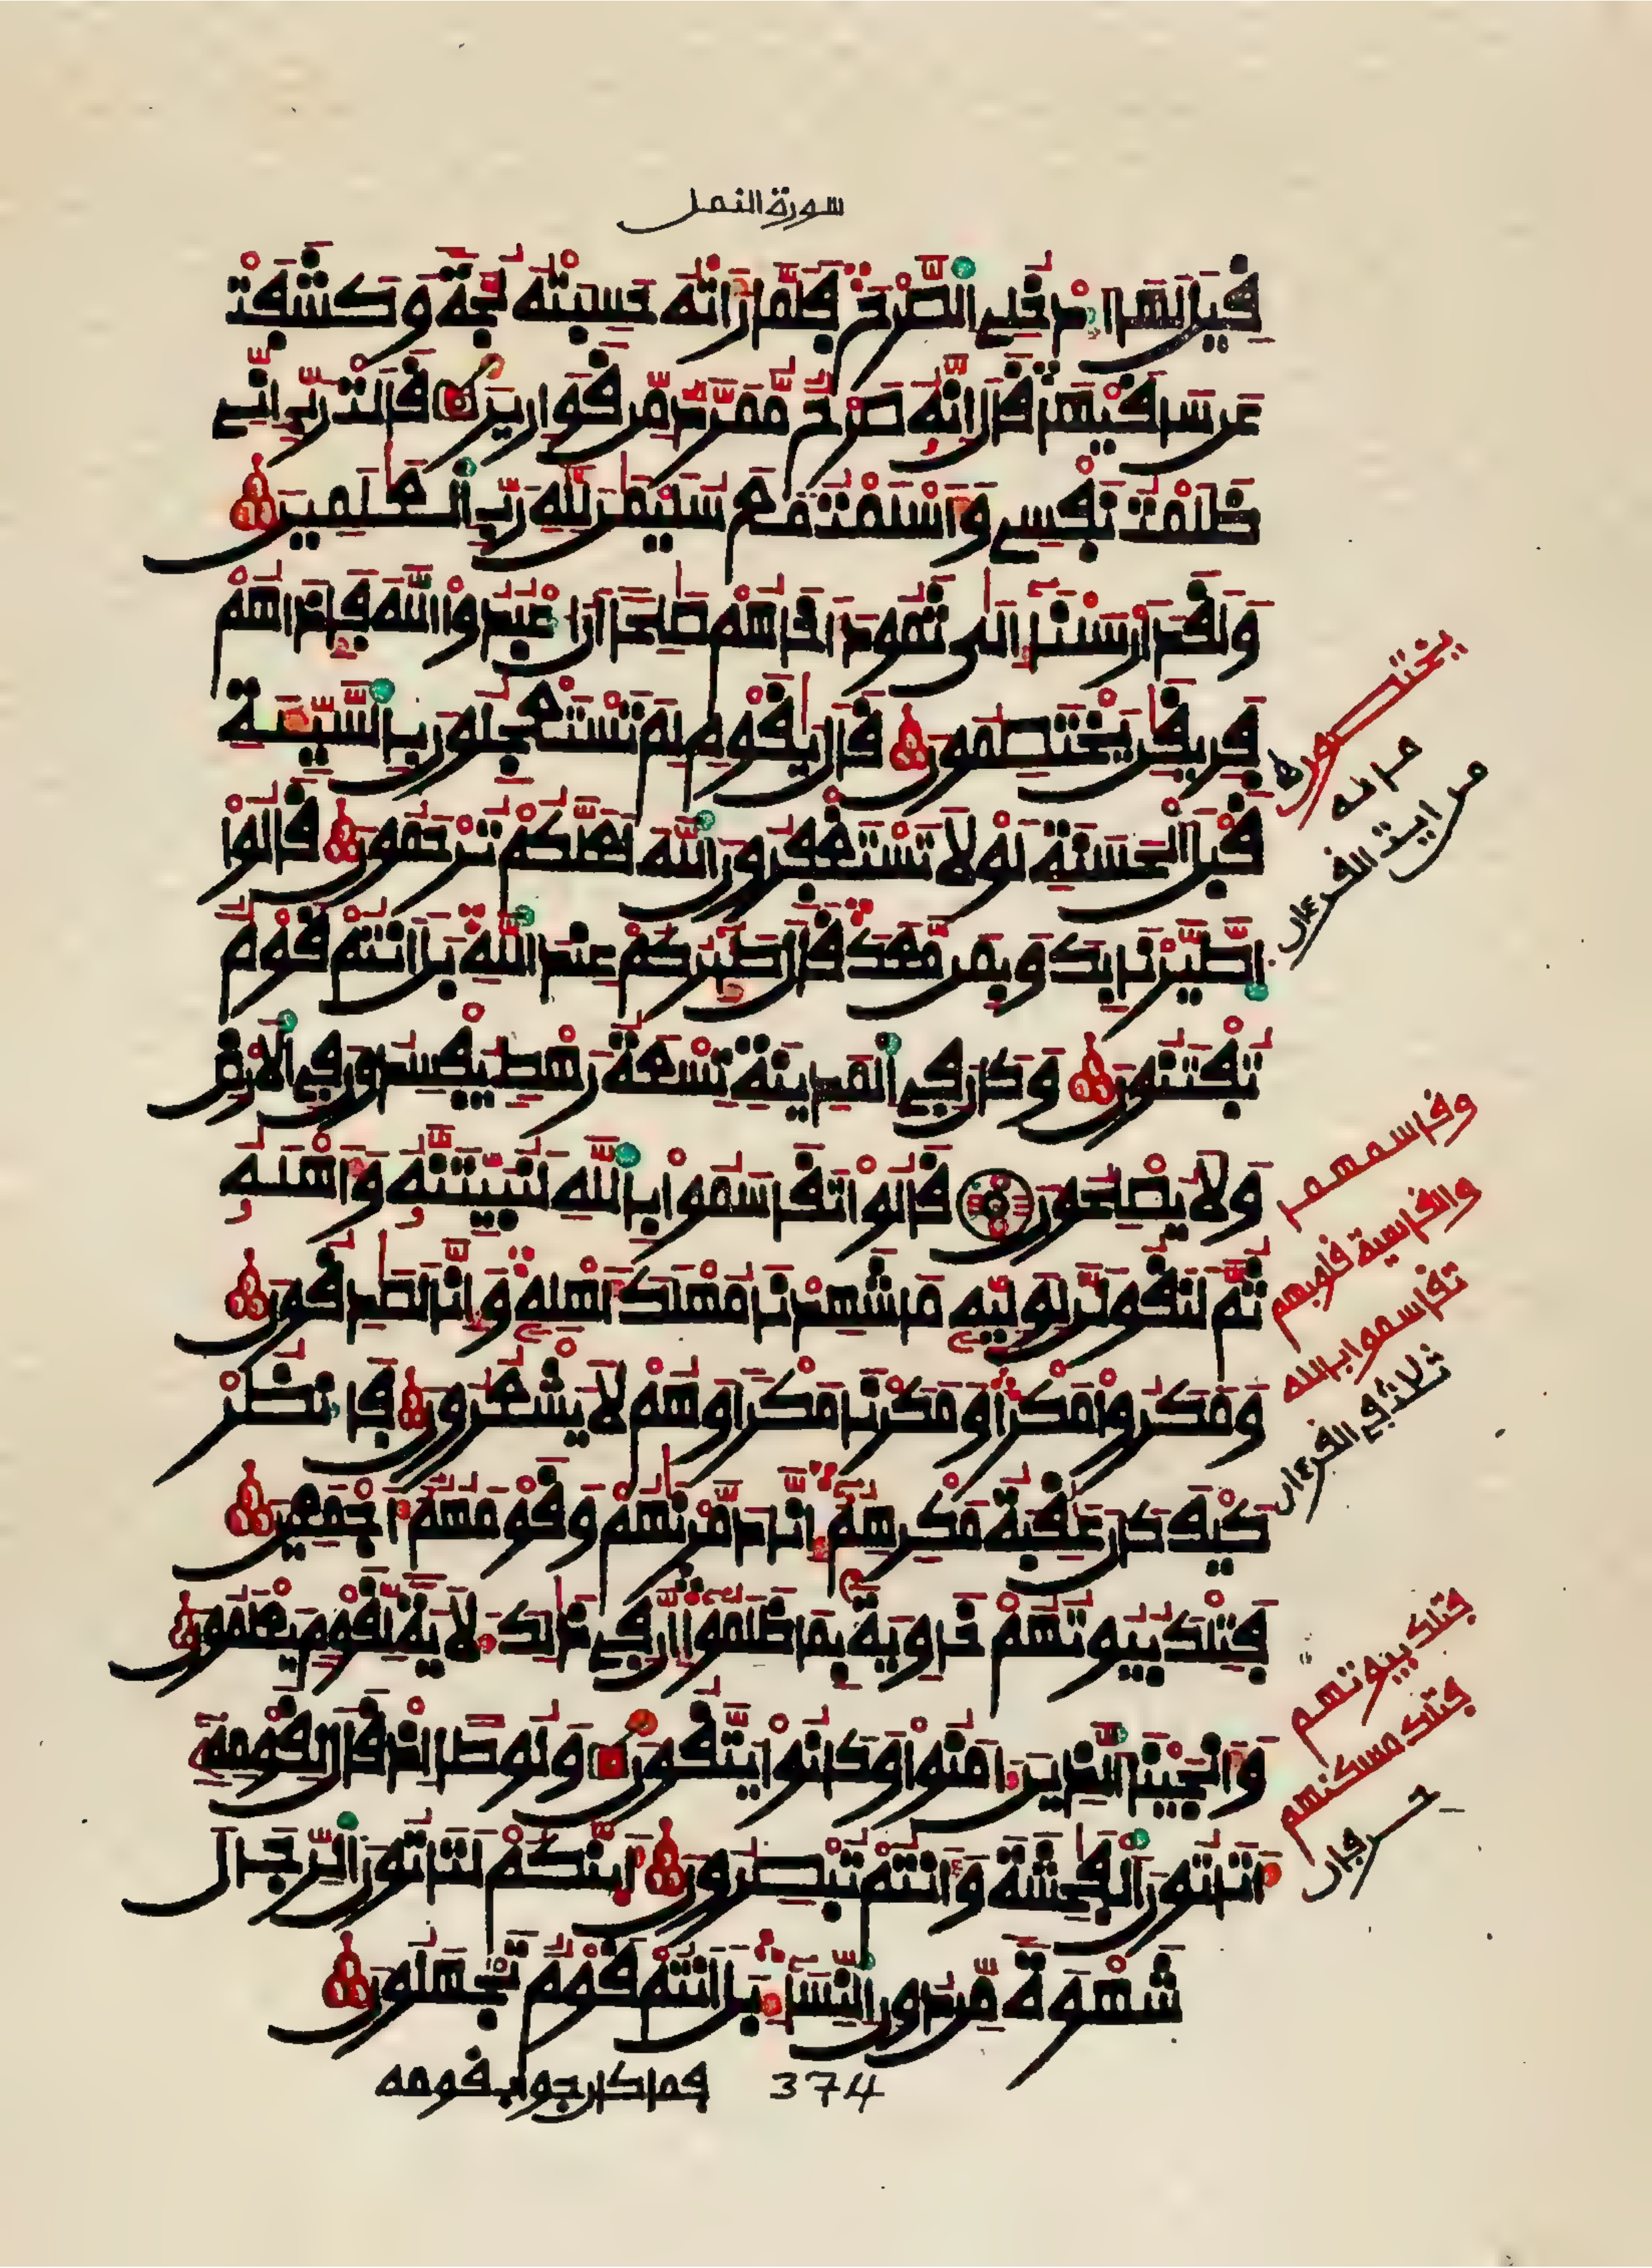 سورة النمل
قِيلَ لَهَا ادْخُلِي الصَّرْحَ فَلَمَّا رَأَتْهُ حَسِبَتْهُ لُجَّةً وَكَشَفَتْ
عَن سَاقَيْهَا قَالَ إِنَّهُ صَرْحٌ مُّمَرَّدٌ مِّن قَوَارِيرَ قَالَتْ رَبِّ إِنِّي
ظَلَمْتُ نَفْسِي وَأَسْلَمْتُ مَعَ سُلَيْمَٰنَ لِلَّهِ رَبِّ الْعَٰلَمِينَ
وَلَقَدْ أَرْسَلْنَا إِلَىٰ ثَمُودَ أَخَاهُمْ صَٰلِحًا أَنُ اعْبُدُوا اللَّهَ فَإِذَا هُمْ
فَرِيقَٰنِ يَخْتَصِمُونَ قَالَ يَٰقَوْمِ لِمَ تَسْتَعْجِلُونَ بِالسَّيِّئَةِ
قَبْلَ الْحَسَنَةِ لَوْلَا تَسْتَغْفِرُونَ اللَّهَ لَعَلَّكُمْ تُرْحَمُونَ قَالُوا
اطَّيَّرْنَا بِكَ وَبِمَن مَّعَكَ قَالَ طَٰئِرُكُمْ عِندَ اللَّهِ بَلْ أَنتُمْ قَوْمٌ
تُفْتَنُونَ وَكَانَ فِي الْمَدِينَةِ تِسْعَةُ رَهْطٍ يُفْسِدُونَ فِي الْأَرْضِ
وَلَا يُصْلِحُونَ قَالُوا تَقَاسَمُوا بِاللَّهِ لَنُبَيِّتَنَّهُ وَأَهْلَهُ
ثُمَّ لَنَقُولَنَّ لِوَلِيِّهِ مَا شَهِدْنَا مُهْلَكَ أَهْلِهِ وَإِنَّا لَصَٰدِقُونَ
وَمَكَرُوا مَكْرًا وَمَكَرْنَا مَكْرًا وَهُمْ لَا يَشْعُرُونَ فَانظُرْ
كَيْفَ كَانَ عَٰقِبَةُ مَكْرِهِمْ إِنَّا دَمَّرْنَٰهُمْ وَقَوْمَهُمْ أَجْمَعِينَ
فَتِلْكَ بُيُوتُهُمْ خَاوِيَةً بِمَا ظَلَمُوا إِنَّ فِي ذَٰلِكَ لَأٓيَةً لِّقَوْمٍ يَعْلَمُونَ
وَأَنجَيْنَا الَّذِينَ ءَامَنُوا وَكَانُوا يَتَّقُونَ وَلُوطًا إِذْ قَالَ لِقَوْمِهِ
أَتَأْتُونَ الْفَٰحِشَةَ وَأَنتُمْ تُبْصِرُونَ أَئِنَّكُمْ لَتَأْتُونَ الرِّجَالَ
شَهْوَةً مِّن دُونِ النِّسَاءِ بَلْ أَنتُمْ قَوْمٌ تَجْهَلُونَ
فما كان جواب قومه 374
وقاسمهما
والقاسية قلوبهم
تقاسموا بالله
ثلاث في القرءان
فتلك بيوتهم
فتلك مسكنهم
حرفان